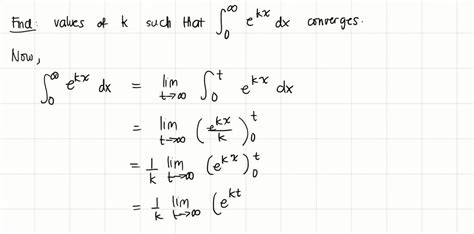 Find: values of k such that ∫₀^∞ e^{kx} dx converges.
Now,
∫₀^∞ e^{kx} dx = lim_{t→∞} ∫₀^t e^{kx} dx
= lim_{t→∞} (e^{kx}/k)₀^t
= 1/k lim_{t→∞} (e^{kx})₀^t
= 1/k lim_{t→∞} (e^{kt}